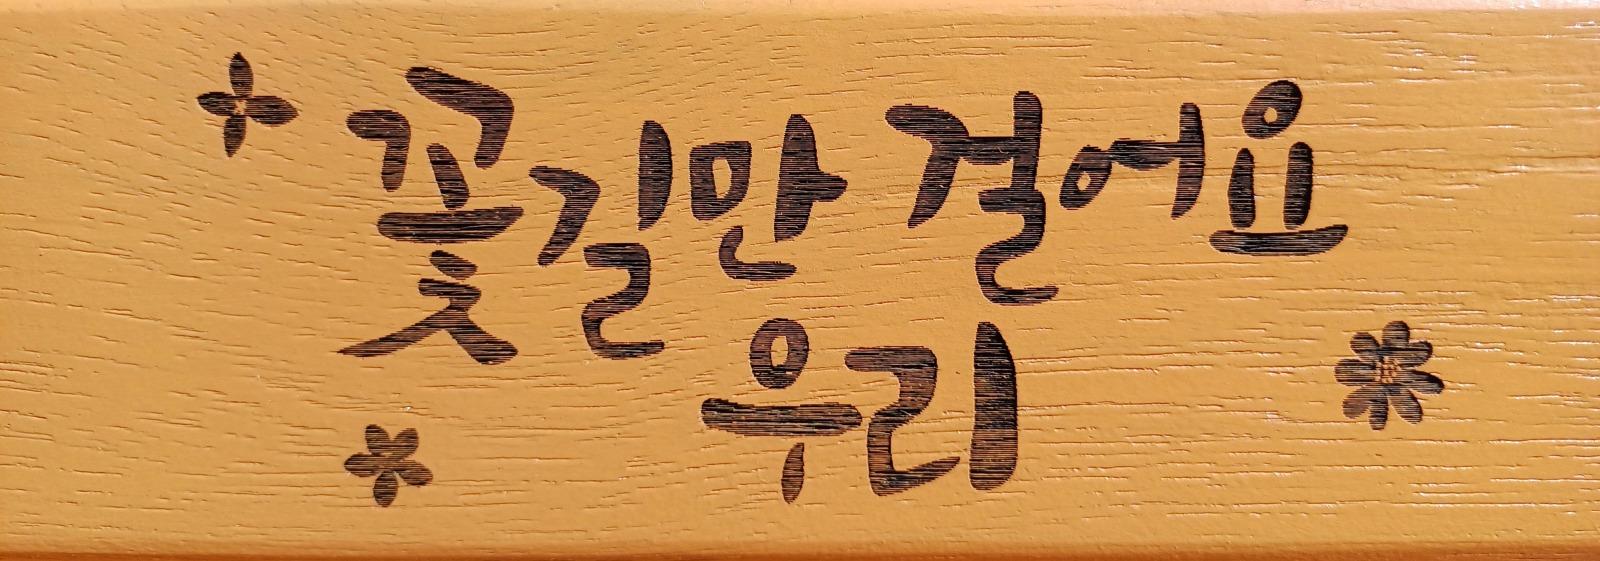 꽃길만 걸어요
우리